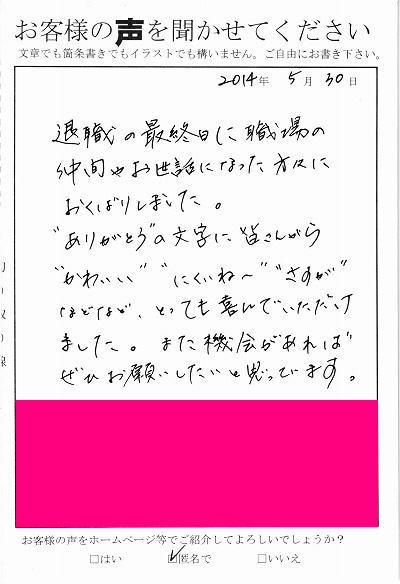 お客様の声を聞かせてください
文章でも箇条書きでもイラストでも構いません。ご自由にお書き下さい。
2014年 5月 30日
退職の最終日に職場の
仲間やお世話になった方々に
おくばりしました。
"ありがとう"の文字に皆さんから
"かわいい" "にくいね〜" "さすが"
などなど、とっても喜んでいただけ
ました。また機会があれば
ぜひお願いしたいと思っています。
お客様の声をホームページ等でご紹介してよろしいでしょうか?
□はい ☑匿名で □いいえ